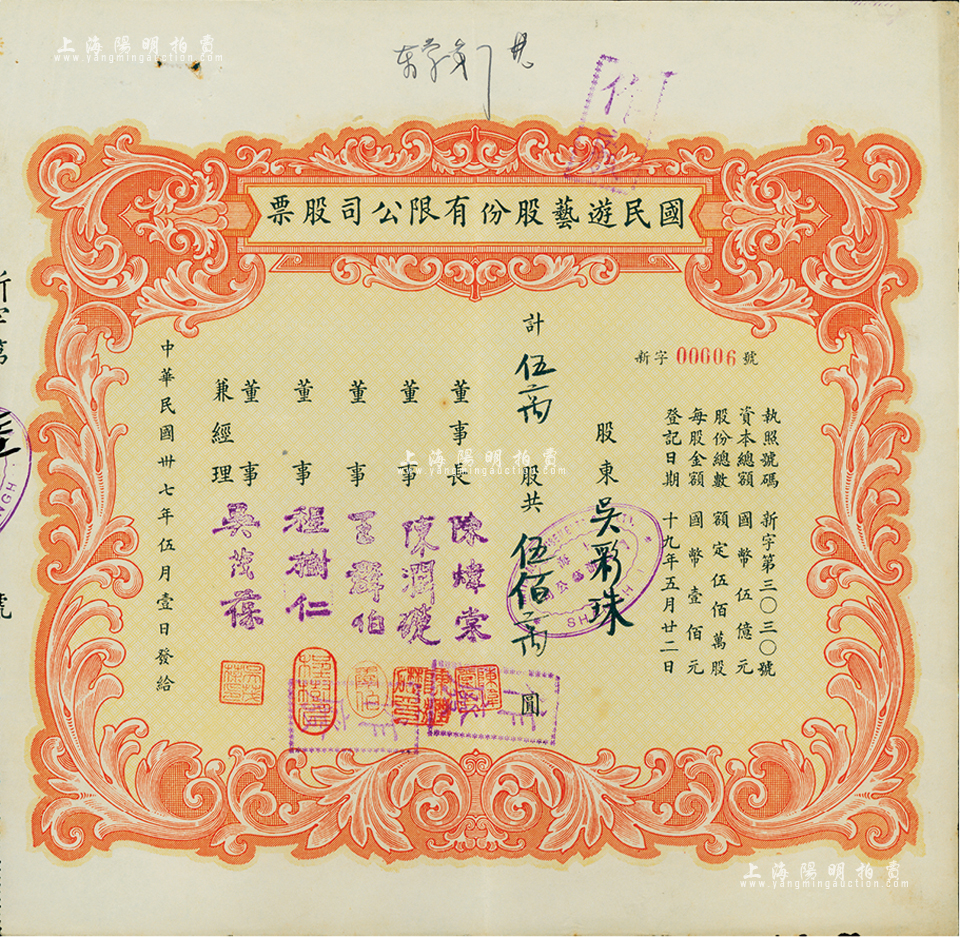 上海陽明拍賣
www.yangmingauction.com
國民遊藝股份有限公司股票
新字 00606 號
執照號碼 新字第三〇三三〇號
資本總額 國幣伍億元
股份總數 額定伍佰萬股
每股金額 國幣壹佰元
登記日期 十九年五月廿二日
股東 吳彩珠
計 伍萬 股共 伍佰萬 圓
董事長 陳煒棠
董事 陳潤礎
董事 王舜伯
董事 程樹仁
董事兼經理 吳茂葆
中華民國卅七年伍月壹日發給
上海陽明拍賣
www.yangmingauction.com
上海陽明拍賣
www.yangmingauction.com